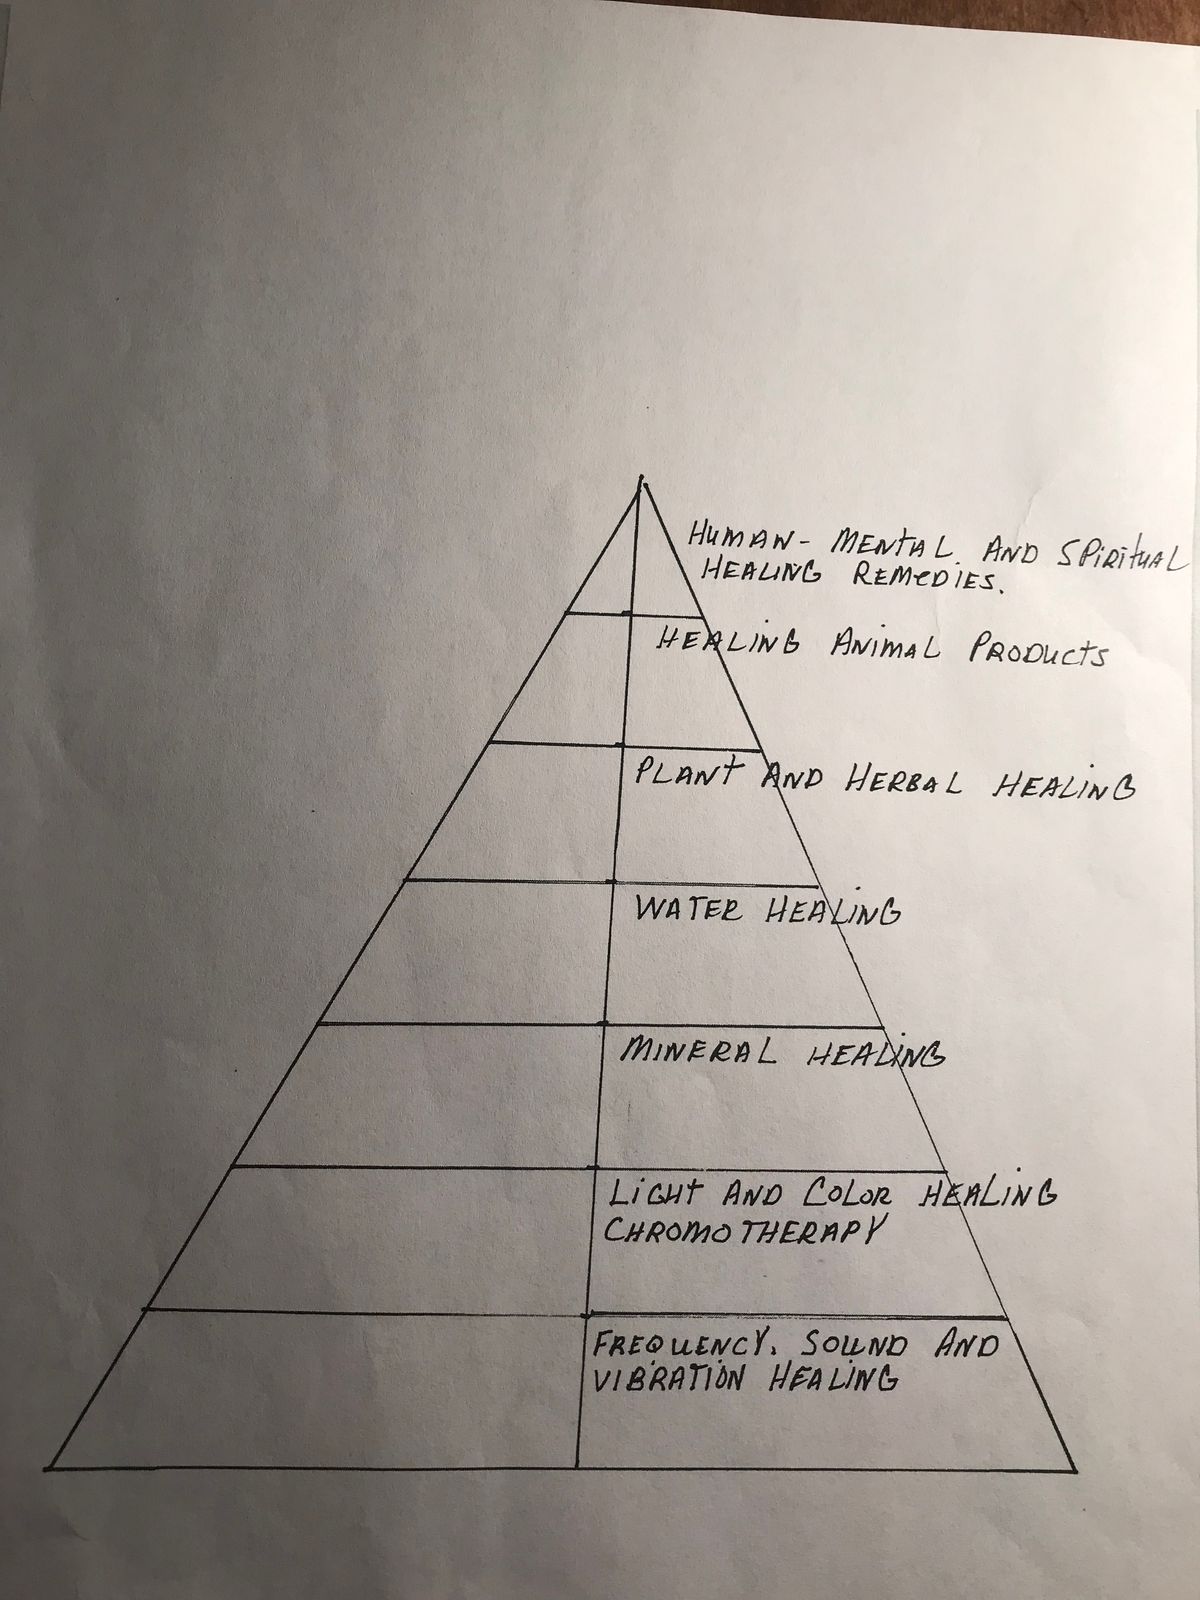 HUMAN- MENTAL AND SPIRITUAL
HEALING REMEDIES.
HEALING ANIMAL PRODUCTS
PLANT AND HERBAL HEALING
WATER HEALING
MINERAL HEALING
LIGHT AND COLOR HEALING
CHROMOTHERAPY
FREQUENCY, SOUND AND
VIBRATION HEALING